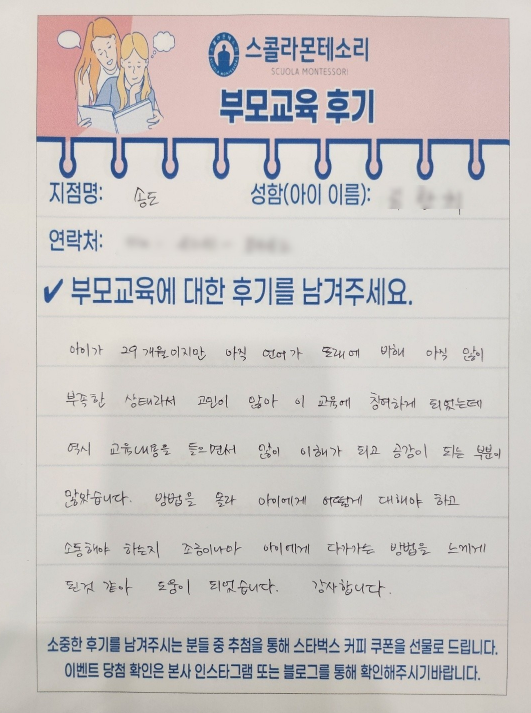 스콜라몬테소리
SCUOLA MONTESSORI
부모교육 후기
지점명: 송도 성함(아이 이름):
연락처:
✔ 부모교육에 대한 후기를 남겨주세요.
아이가 29개월이지만 아직 언어가 또래에 비해 아직 많이
부족한 상태라서 고민이 많아 이 교육에 참여하게 되었는데
역시 교육내용을 들으면서 많이 이해가 되고 공감이 되는 부분이
많았습니다. 방법을 몰라 아이에게 어떻게 대해야 하고
소통해야 하는지 조금이나마 아이에게 다가가는 방법을 느끼게
된것 같아 도움이 되었습니다. 감사합니다.
소중한 후기를 남겨주시는 분들 중 추첨을 통해 스타벅스 커피 쿠폰을 선물로 드립니다.
이벤트 당첨 확인은 본사 인스타그램 또는 블로그를 통해 확인해주시기바랍니다.